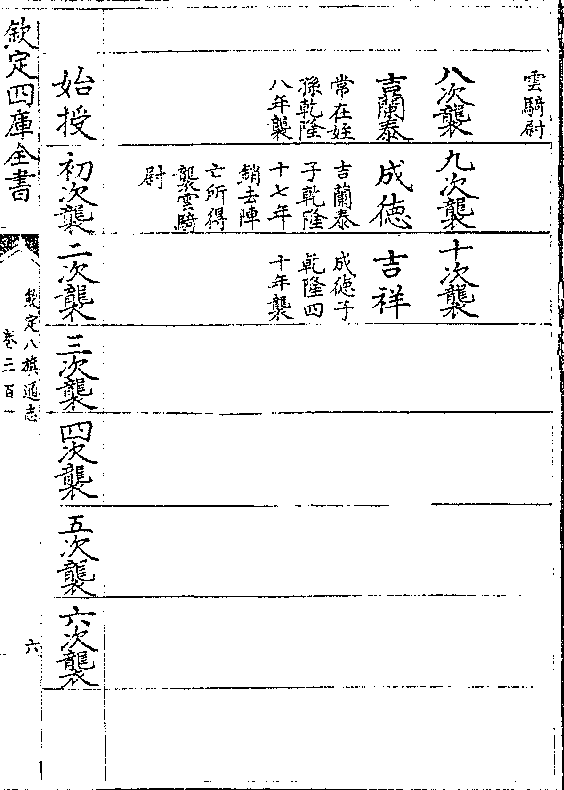 雲騎尉
八次襲
吉蘭泰
常在姪
孫乾隆
八年襲
九次襲
成德
吉蘭泰
子乾隆
十七年
銷去陣
亡所得
襲雲騎
尉
十次襲
吉祥
成德子
乾隆四
十年襲
始授
初次襲
二次襲
三次襲
四次襲
五次襲
六次襲
欽定四庫全書
欽定八旗通志
卷三百一
六